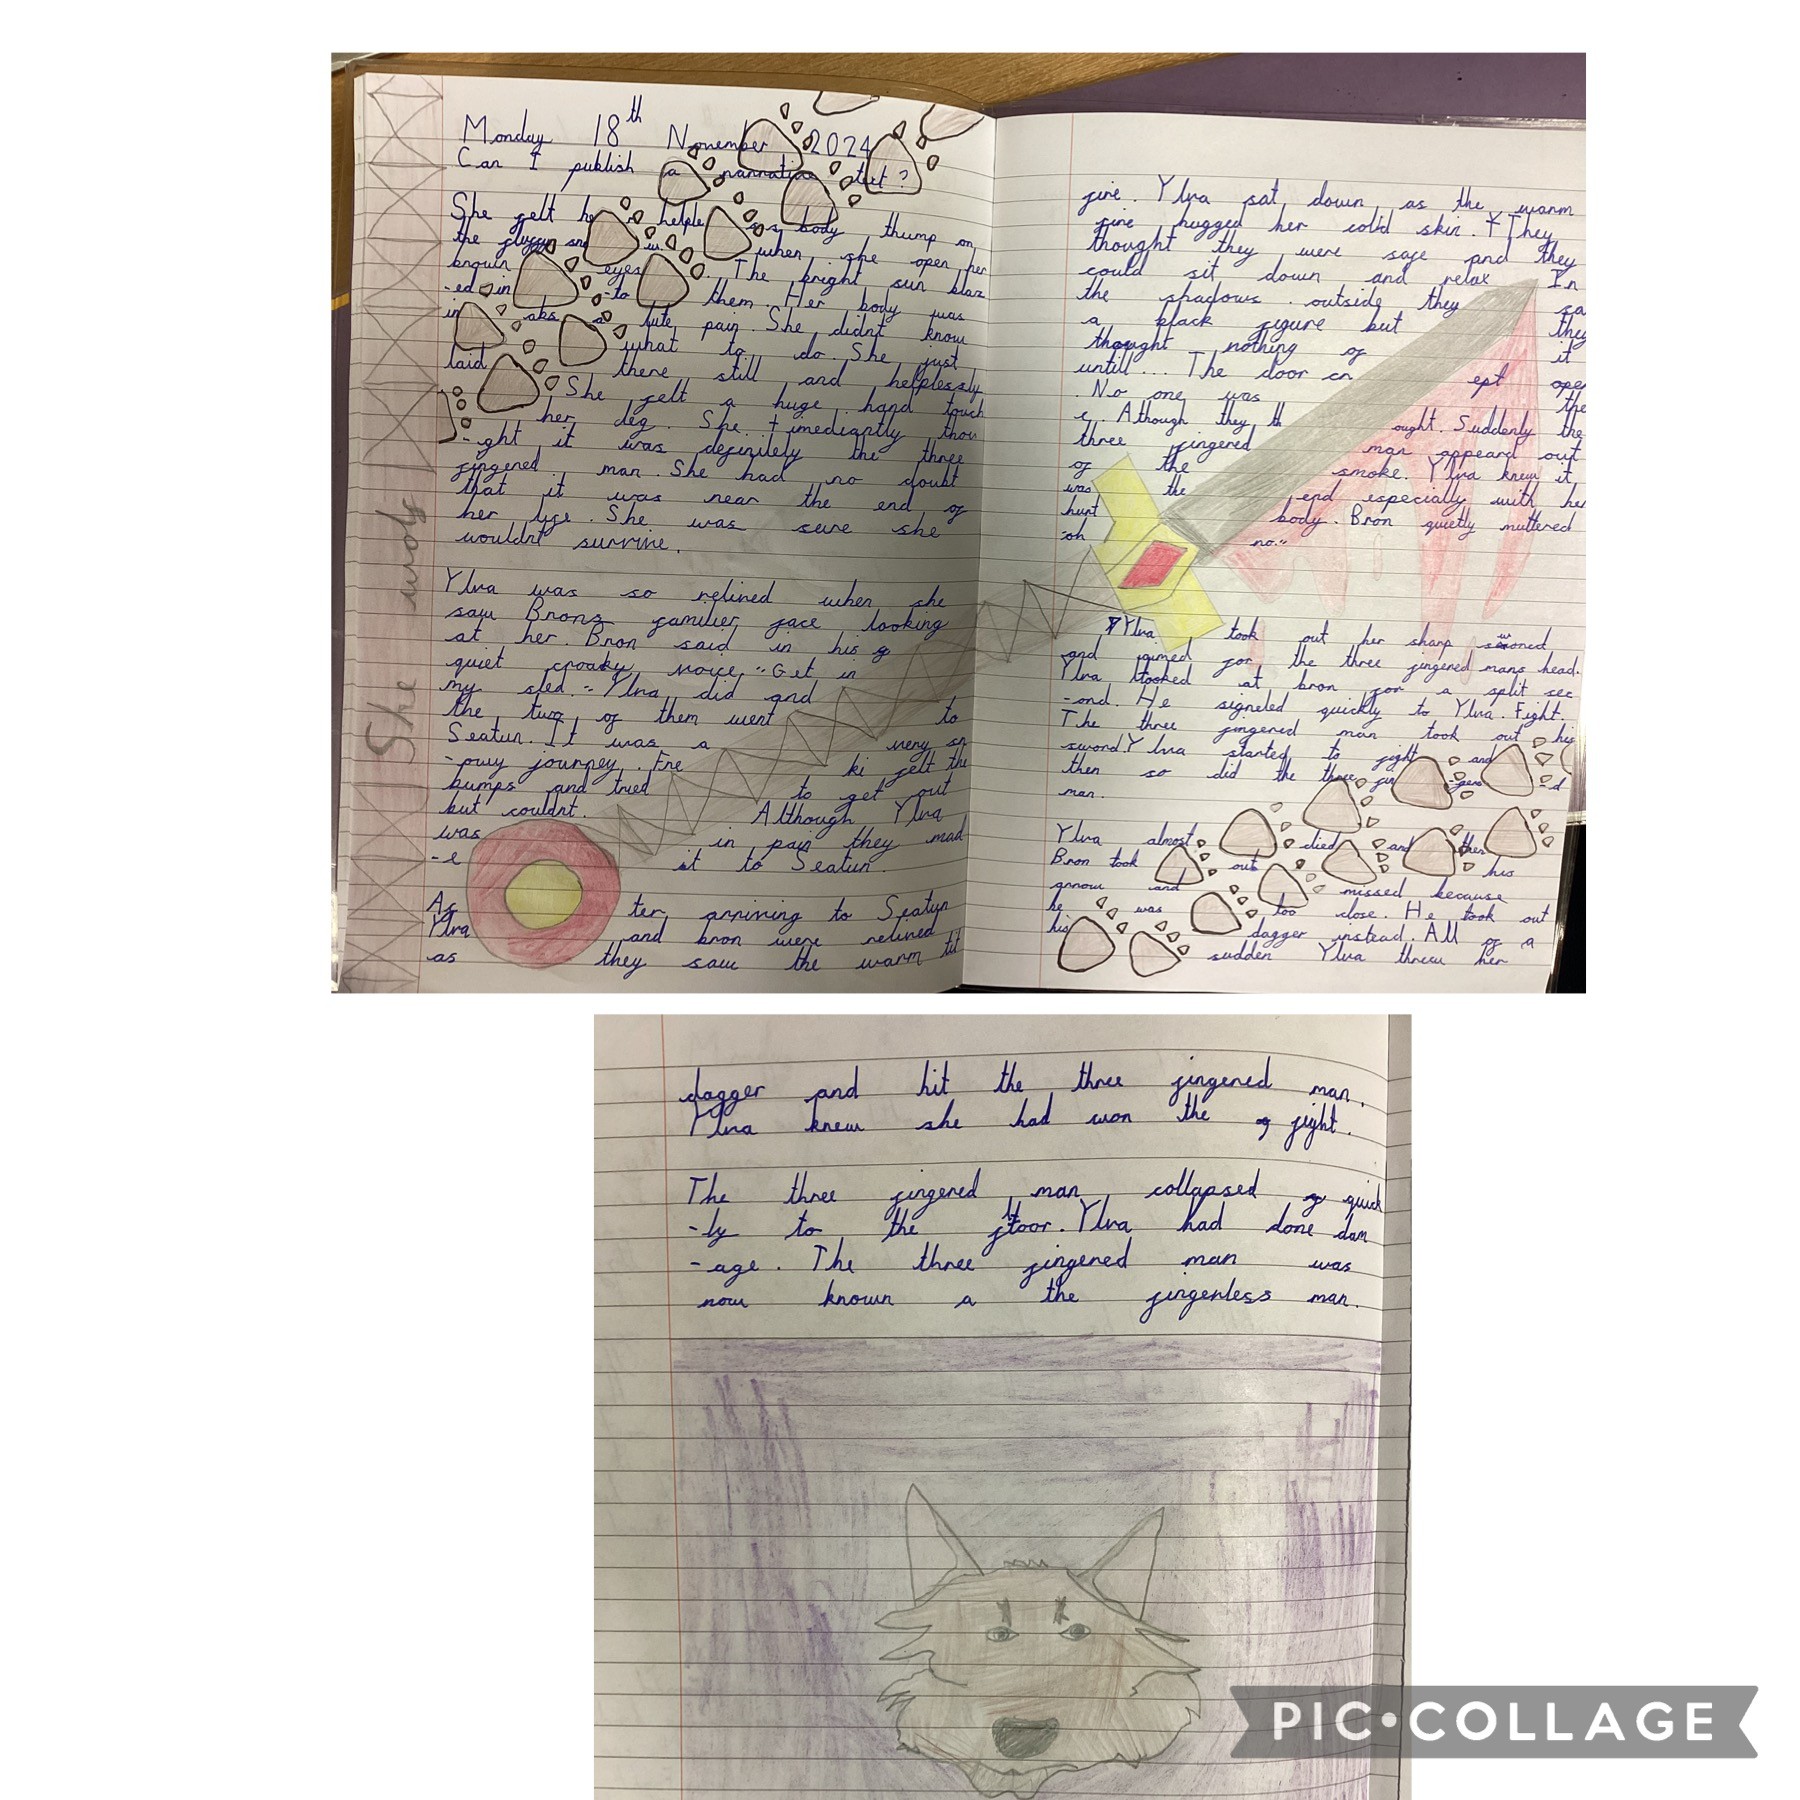 Monday 18th November 2024
Can I publish a narrative text?
She felt her helpless body thump on
the fluffy snow when she open her
brown eyes. The bright sun blaz
-ed in -to them. Her body was
in abs o lute pain. She didnt know
what to do. She just
laid there still and helplessly
. She felt a huge hand touch
her leg. She imediantly thou
-ght it was definitely the three
fingered man. She had no doubt
that it was near the end of
her life. She was sure she
wouldnt survive.
Ylva was so relived when she
saw Brons familier face looking
at her. Bron said in his
quiet croaky voice, "Get in
my sled." Ylva did and
the two of them went to
Seatun. It was a very sn
-owy journey. Fre ki felt the
bumps and tried to get out
but couldnt. Although Ylva
was in pain they mad
-e it to Seatun.
Af ter arriving to Seatun
Ylva and bron were relived
as they saw the warm lit
fire. Ylva sat down as the warm
fire hugged her cold skin. They
thought they were safe and they
could sit down and relax In
the shadows outside they sa
a black figure but they
thought nothing of it
untill... The door cr ept open
. No one was the
e. Athough they th ought. Suddenly the
three fingered man appeard out
of the smoke. Ylva knew it
was the end especially with her
hurt body. Bron quietly muttered
"oh no."
Ylva took out her sharp sword
and aimed for the three fingered mans head.
Ylva looked at bron for a split sec
-ond. He signeled quickly to Ylva. Fight.
The three fingered man took out his
sword. Ylva started to fight and
then so did the three fin -gere -d
man.
Ylva almost died and then
Bron took out his
arrow and missed because
he was too close. He took out
his dagger instead. All of a
sudden Ylva threw her
She wolf
dagger and hit the three fingered man.
Ylva knew she had won the fight.
The three fingered man collapsed quick
-ly to the floor. Ylva had done dam
-age. The three fingered man was
now known a the fingerless man.
PIC•COLLAGE